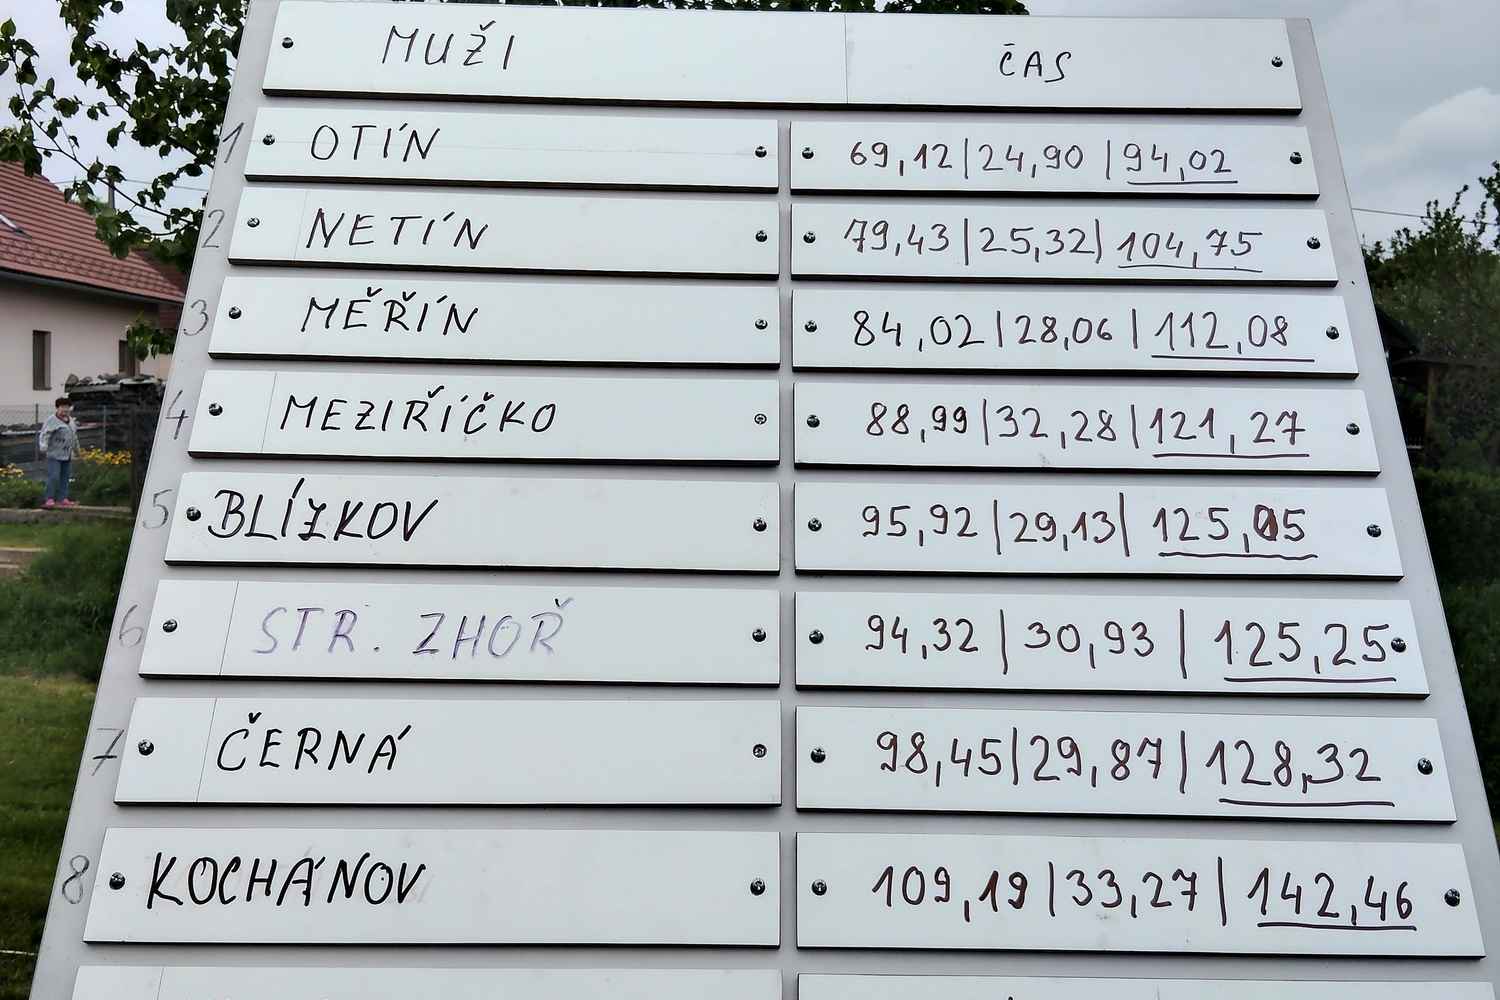 MUŽI ČAS
1 OTÍN 69,12|24,90|94,02
2 NETÍN 79,43|25,32|104,75
3 MĚŘÍN 84,02|28,06|112,08
4 MEZIŘÍČKO 88,99|32,28|121,27
5 BLÍZKOV 95,92|29,13|125,05
6 STR. ZHOŘ 94,32|30,93|125,25
7 ČERNÁ 98,45|29,87|128,32
8 KOCHÁNOV 109,19|33,27|142,46